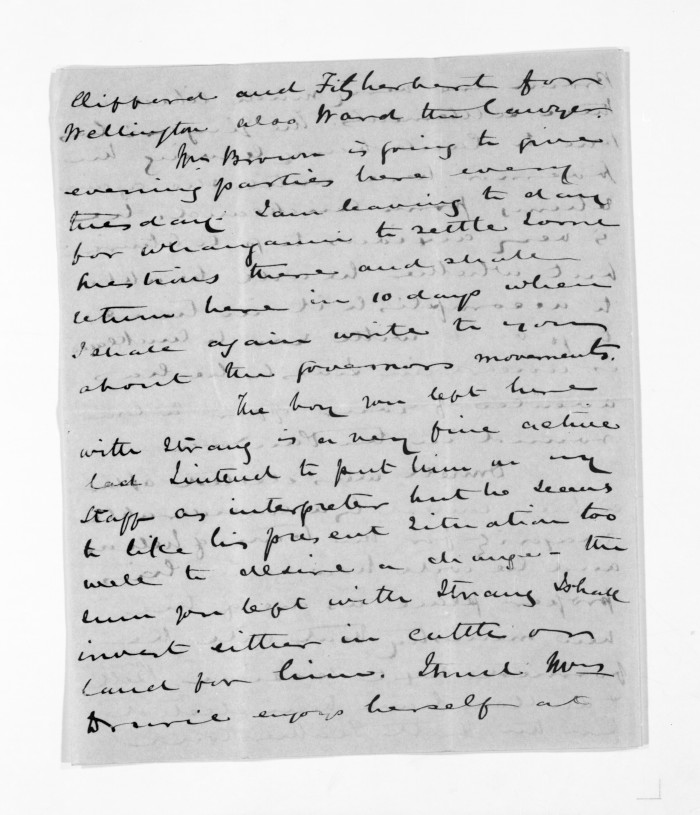 Clifford and Fitzherbert for
Wellington also Ward the Lawyer.
Mrs Brown is going to give
evening parties here every
tuesday. I am leaving to day
for Whanganui to settle some
questions there and shall
return here in 10 days when
I shall again write to you
about the governors movements.
The boy you left here
with Strang is a very fine active
lad. I intend to put him on my
staff as interpreter but he seems
to like his present situation too
well to desire a change - the
sum you left with Strang I shall
invest either in cattle or
land for him. I trust Mrs
enjoys herself at